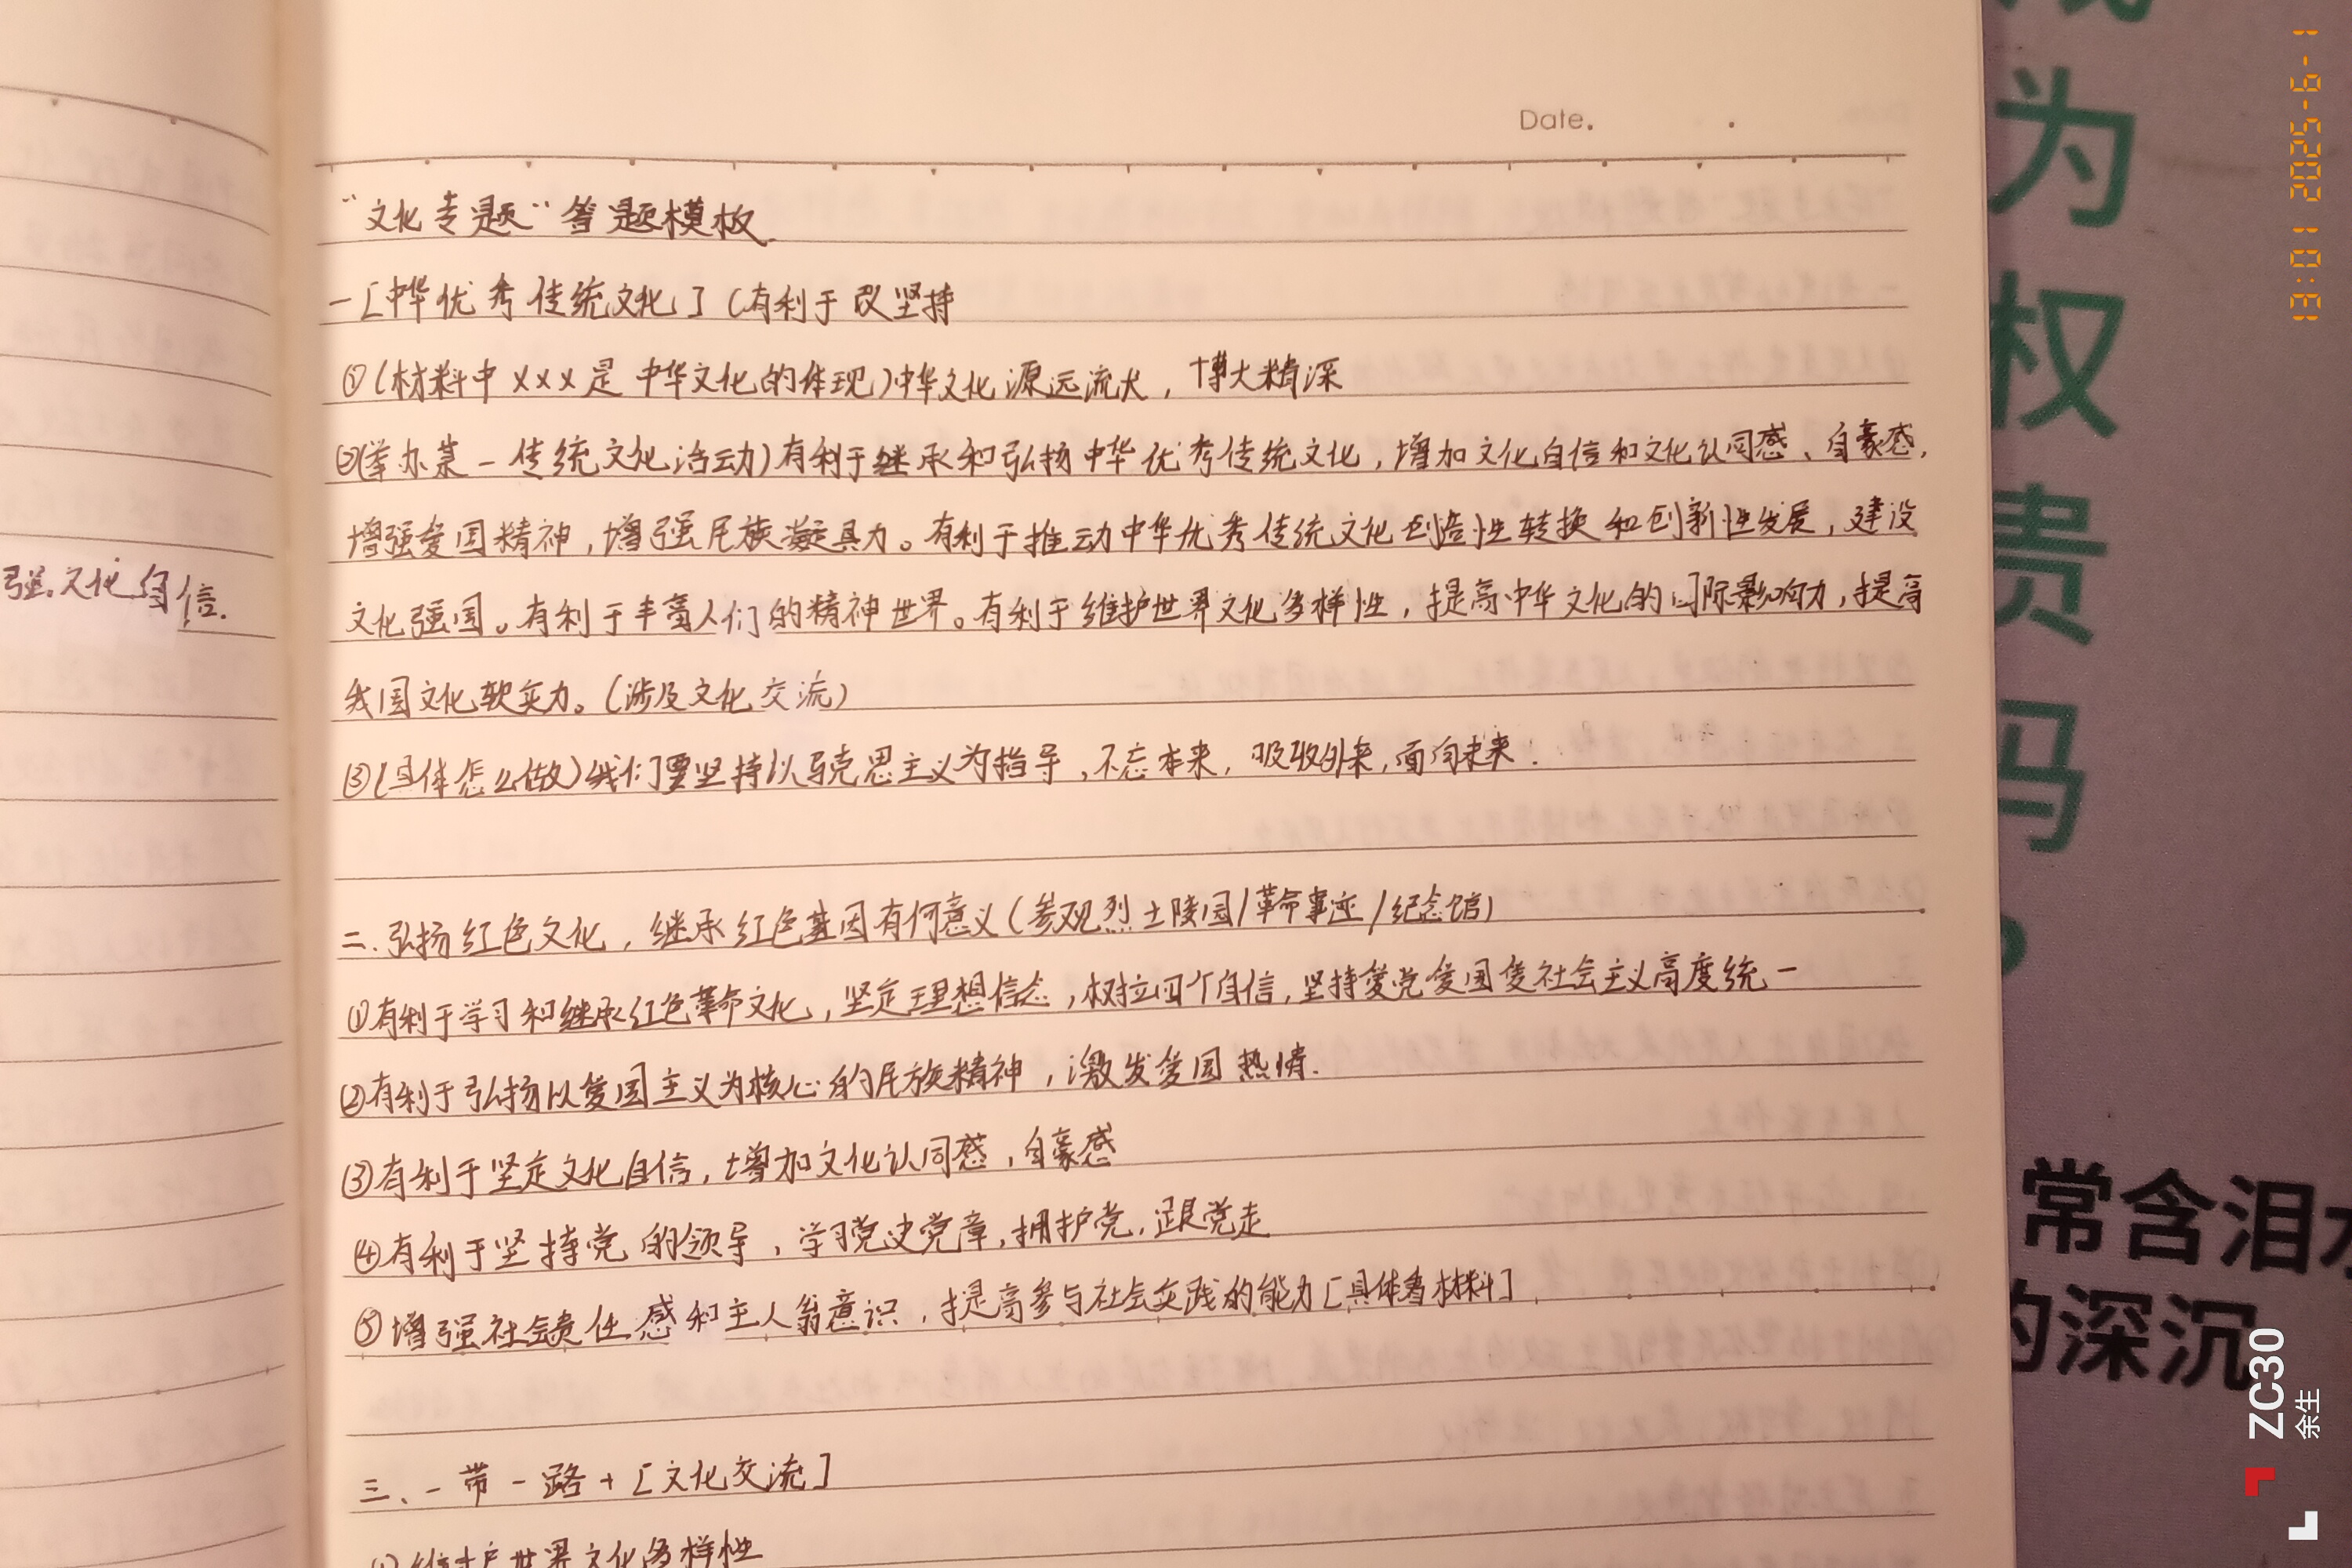 Date.
"文化专题"答题模板
一[中华优秀传统文化](有利于改坚持
①(材料中×××是中华文化的体现)中华文化源远流长，博大精深
②(举办某一传统文化活动)有利于继承和弘扬中华优秀传统文化，增加文化自信和文化认同感、自豪感，
增强爱国精神，增强民族凝具力。有利于推动中华优秀传统文化创造性转换和创新性发展，建设
文化强国。有利于丰富人们的精神世界。有利于维护世界文化多样性，提高中华文化的国际影响力，提高
我国文化软实力。(涉及文化交流)
③(具体怎么做)我们要坚持以马克思主义为指导，不忘本来，吸收外来，面向未来.
二.弘扬红色文化，继承红色基因有何意义(参观烈士陵园/革命事迹/纪念馆)
①有利于学习和继承红色革命文化，坚定理想信念，树立四个自信，坚持爱党爱国爱社会主义高度统一
②有利于弘扬以爱国主义为核心的民族精神，激发爱国热情.
③有利于坚定文化自信，增加文化认同感，自豪感
④有利于坚持党的领导，学习党史党章，拥护党，跟党走
⑤增强社会责任感和主人翁意识，提高参与社会实践的能力[具体看材料]
三、一带一路+[文化交流]
①维护世界文化多样性
强.文化自信.
成为权贵吗?
常含泪水
的深沉
2025-6-1 18:01
ZC30
余生